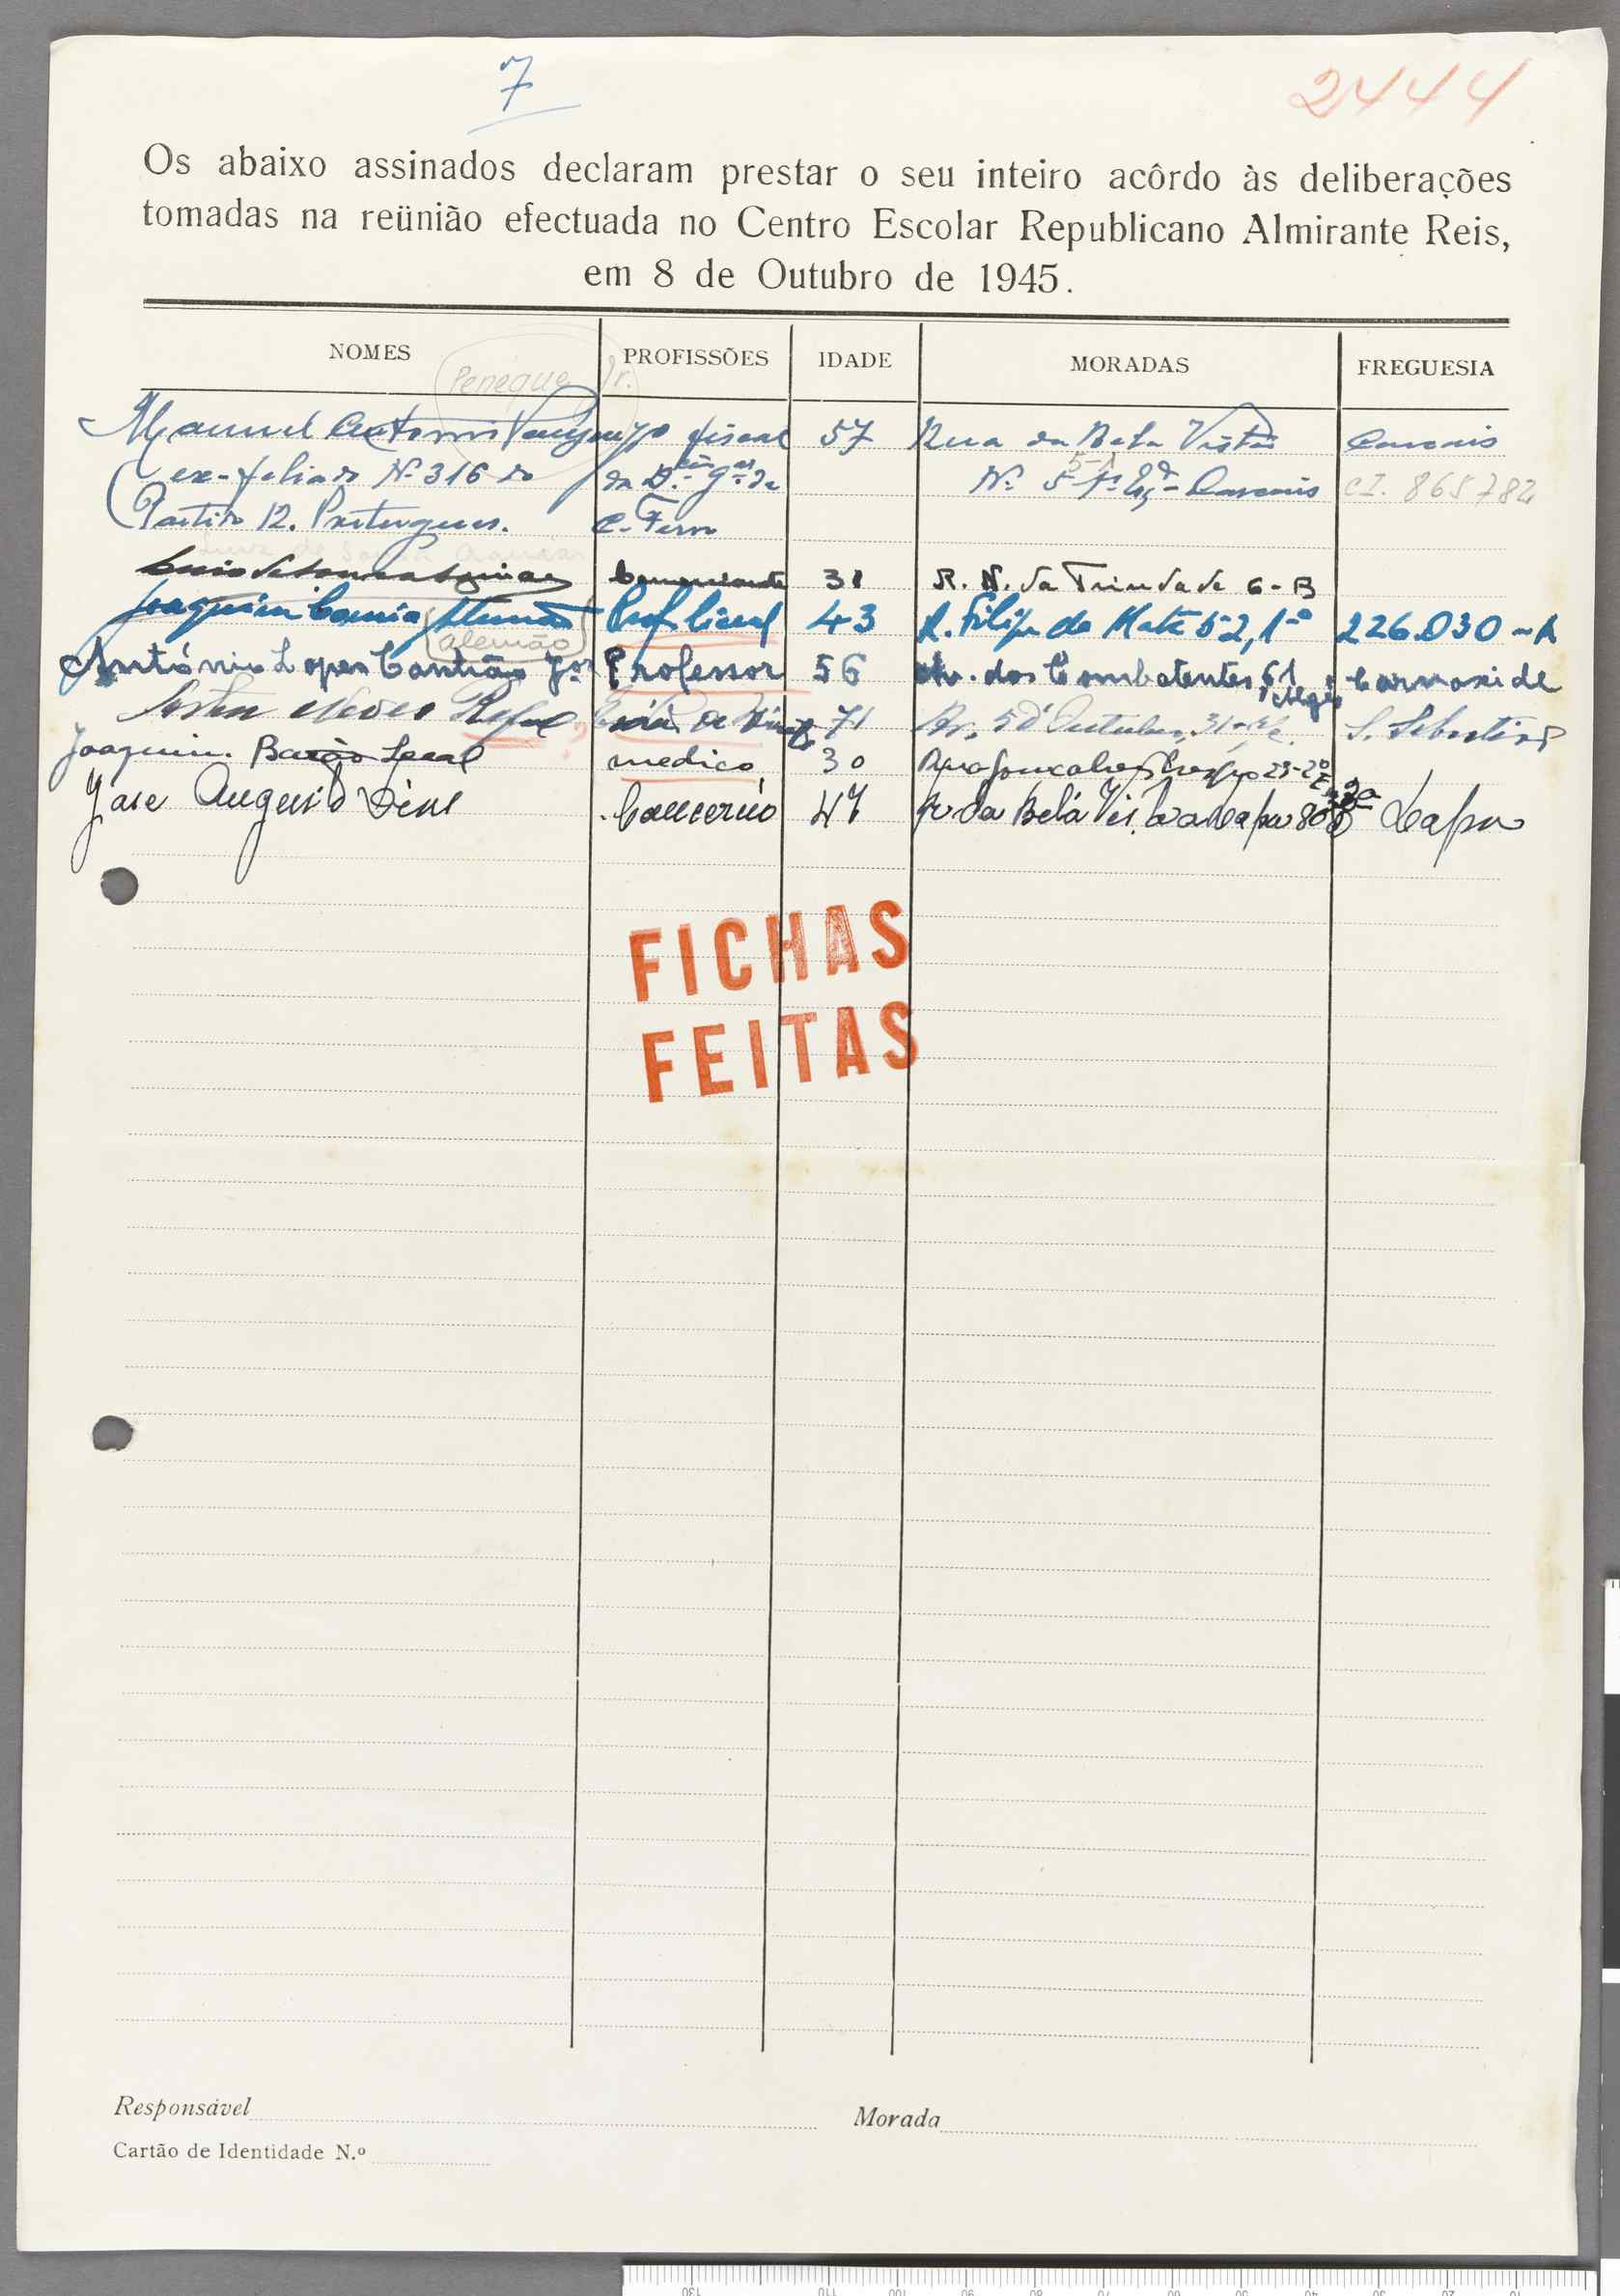 7
2444
Os abaixo assinados declaram prestar o seu inteiro acôrdo às deliberações
tomadas na reünião efectuada no Centro Escolar Republicano Almirante Reis,
em 8 de Outubro de 1945.
NOMES PROFISSÕES IDADE MORADAS FREGUESIA
Peneque Jr.
Manuel Antonio fiscal 57 Rua da Bela Vista Cascais
ex-filiado Nº 316 do da D. G. de Nº 5 Cascais CI. 865782
Partido R. Portugues. C. Ferro
Luiz de Sousa Aguiar
Comerciante 31 R. N. da Trindade 6-B
Joaquim Correia Prof. liceal 43 R. Filipe da Mata 52, 1º 226.030-A
alemão
António Lopes Jor Professor 56 Av. dos Combatentes, 61, Algés Carnaxide
Neves 71 Av. 5 d'Outubro, 31 S. Sebastião
Joaquim Barão Leal medico 30 23-2º
Jose Augusto Dias 47 R da Bela Vista a Lapa 80 Lapa
FICHAS
FEITAS
Responsável Morada
Cartão de Identidade N.º